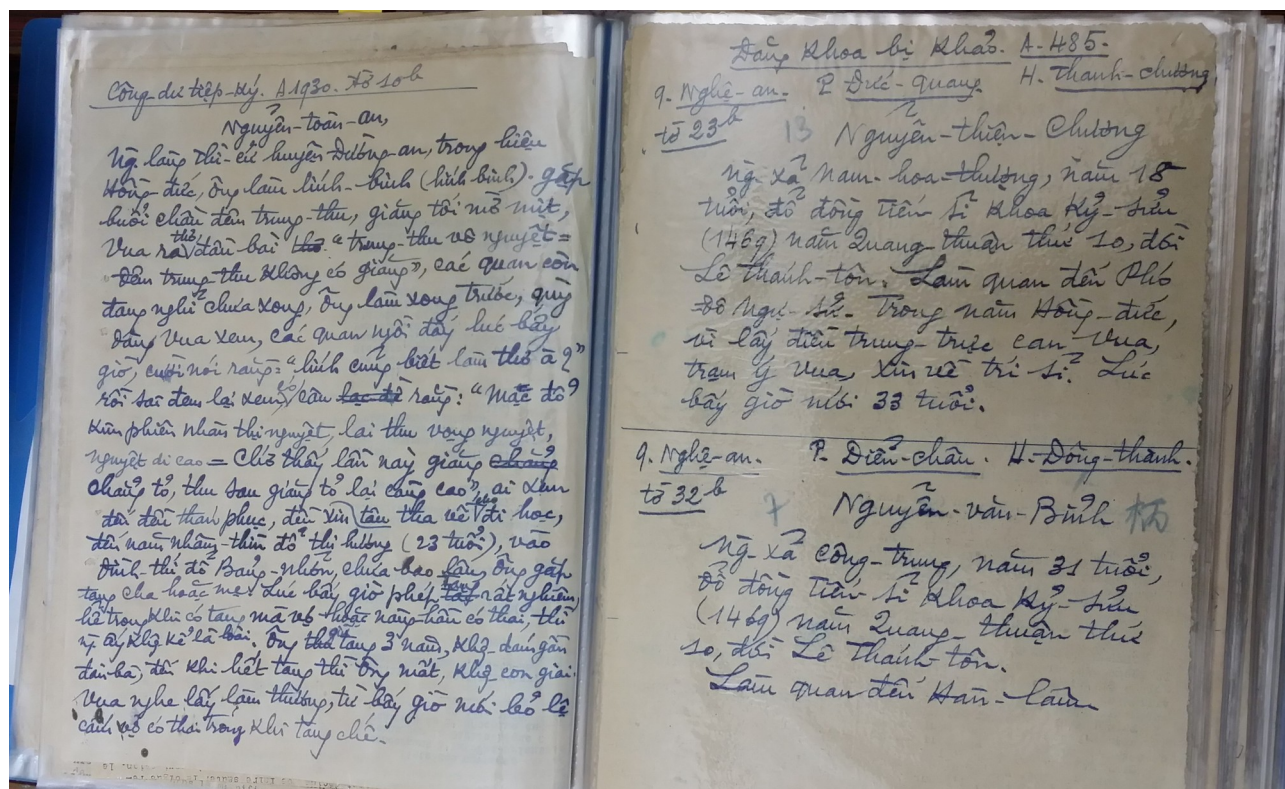 Công-dư tiệp-ký. A1930. tờ 10b
Nguyễn-toàn-an,
Ng. làng Thì-cử huyện Đường-an, trong hiệu
Hồng-đức, ông làm lính-bình (lính bình). gặp
buổi chầu đêm trung-thu, giăng tối mờ mịt,
Vua ra thơ đầu bài thơ "trung-thu vô nguyệt =
Đêm trung thu không có giăng", các quan còn
đang nghĩ chưa xong, ông làm xong trước, quỳ
dâng vua xem, các quan ngồi đấy lúc bấy
giờ, cười nói rằng: "lính cũng biết làm thơ à?"
rồi sai đem lại xem, có câu rằng: "Mạc đố
kim phiên nhân thị nguyệt, lai thu vọng nguyệt,
nguyệt di cao = Chớ thấy lần này giăng chẳng
chẳng tỏ, thu sau giăng tỏ lại càng cao", ai xem
đến đều than phục, đều xin tâu tha về cho đi học,
đến năm nhâm-thìn đỗ thi hương (23 tuổi), vào
Đình-thí đỗ Bảng-nhỡn, chưa bao lâu, ông gặp
tang cha hoặc mẹ. Lúc bấy giờ phép tang rất nghiêm,
hễ trong khi có tang mà vợ hoặc nàng hầu có thai, thì
ng. ấy khg kể là loài. Ông thủ tang 3 năm, khg dám gần
đàn-bà, đến khi hết tang thì ông mất, khg con giai.
Vua nghe lấy làm thương, từ bấy giờ mới bỏ lệ
cấm vợ có thai trong khi tang chế.
Đăng Khoa bị Khảo. A-485.
q. Nghệ-an. P. Đức-quang. H. Thanh-chương
tờ 23b 13 Nguyễn-thiện-Chương
ng. xã Nam-hoa-thượng, năm 18
tuổi, đỗ đồng tiến sĩ khoa Kỷ-sửu
(1469) năm Quang-thuận thứ 10, đời
Lê Thánh-tôn. Làm quan đến Phó
Đô Ngự-sử. Trong năm Hồng-đức,
vì lấy điều trung-trực can vua,
trạm ý vua, xin về trí sĩ. Lúc
bấy giờ mới 33 tuổi.
q. Nghệ-an. P. Diễn-châu. H. Đông-thành.
tờ 32b 7 Nguyễn-văn-Bỉnh 柄
ng. xã Công-trung, năm 31 tuổi,
đỗ đồng tiến sĩ khoa Kỷ-sửu
(1469) năm Quang-thuận thứ
10, đời Lê Thánh-tôn.
Làm quan đến Hàn-lâm